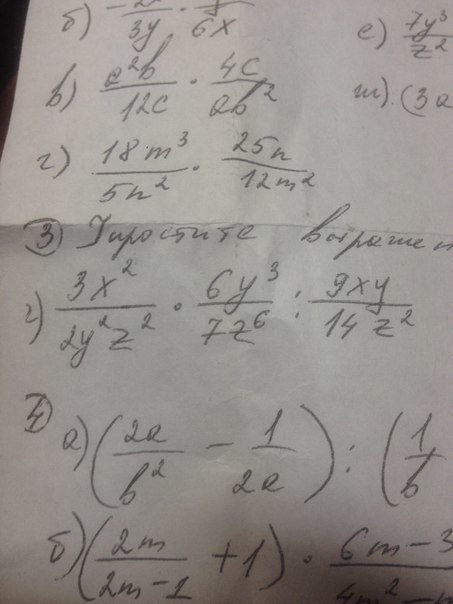 б) 3y · 6x
е) 7y³/z²
в) a²b/12c · 4c/ab²
ж) (3a
г) 18m³/5n² · 25n/12m²
③ Упростите выражен
г) 3x²/2y²z² · 6y³/7z⁶ : 9xy/14z²
④
а) (2a/b² − 1/2a) : (1/b
б) (2m/2m−1 + 1) · 6m−3/4m²−m